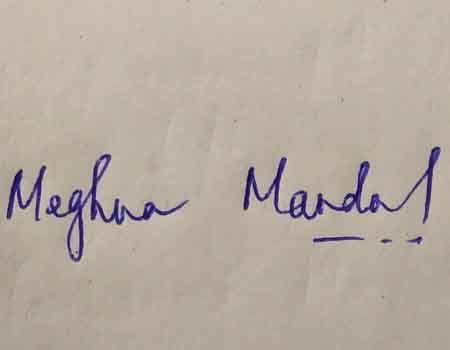 Meghna Mandal